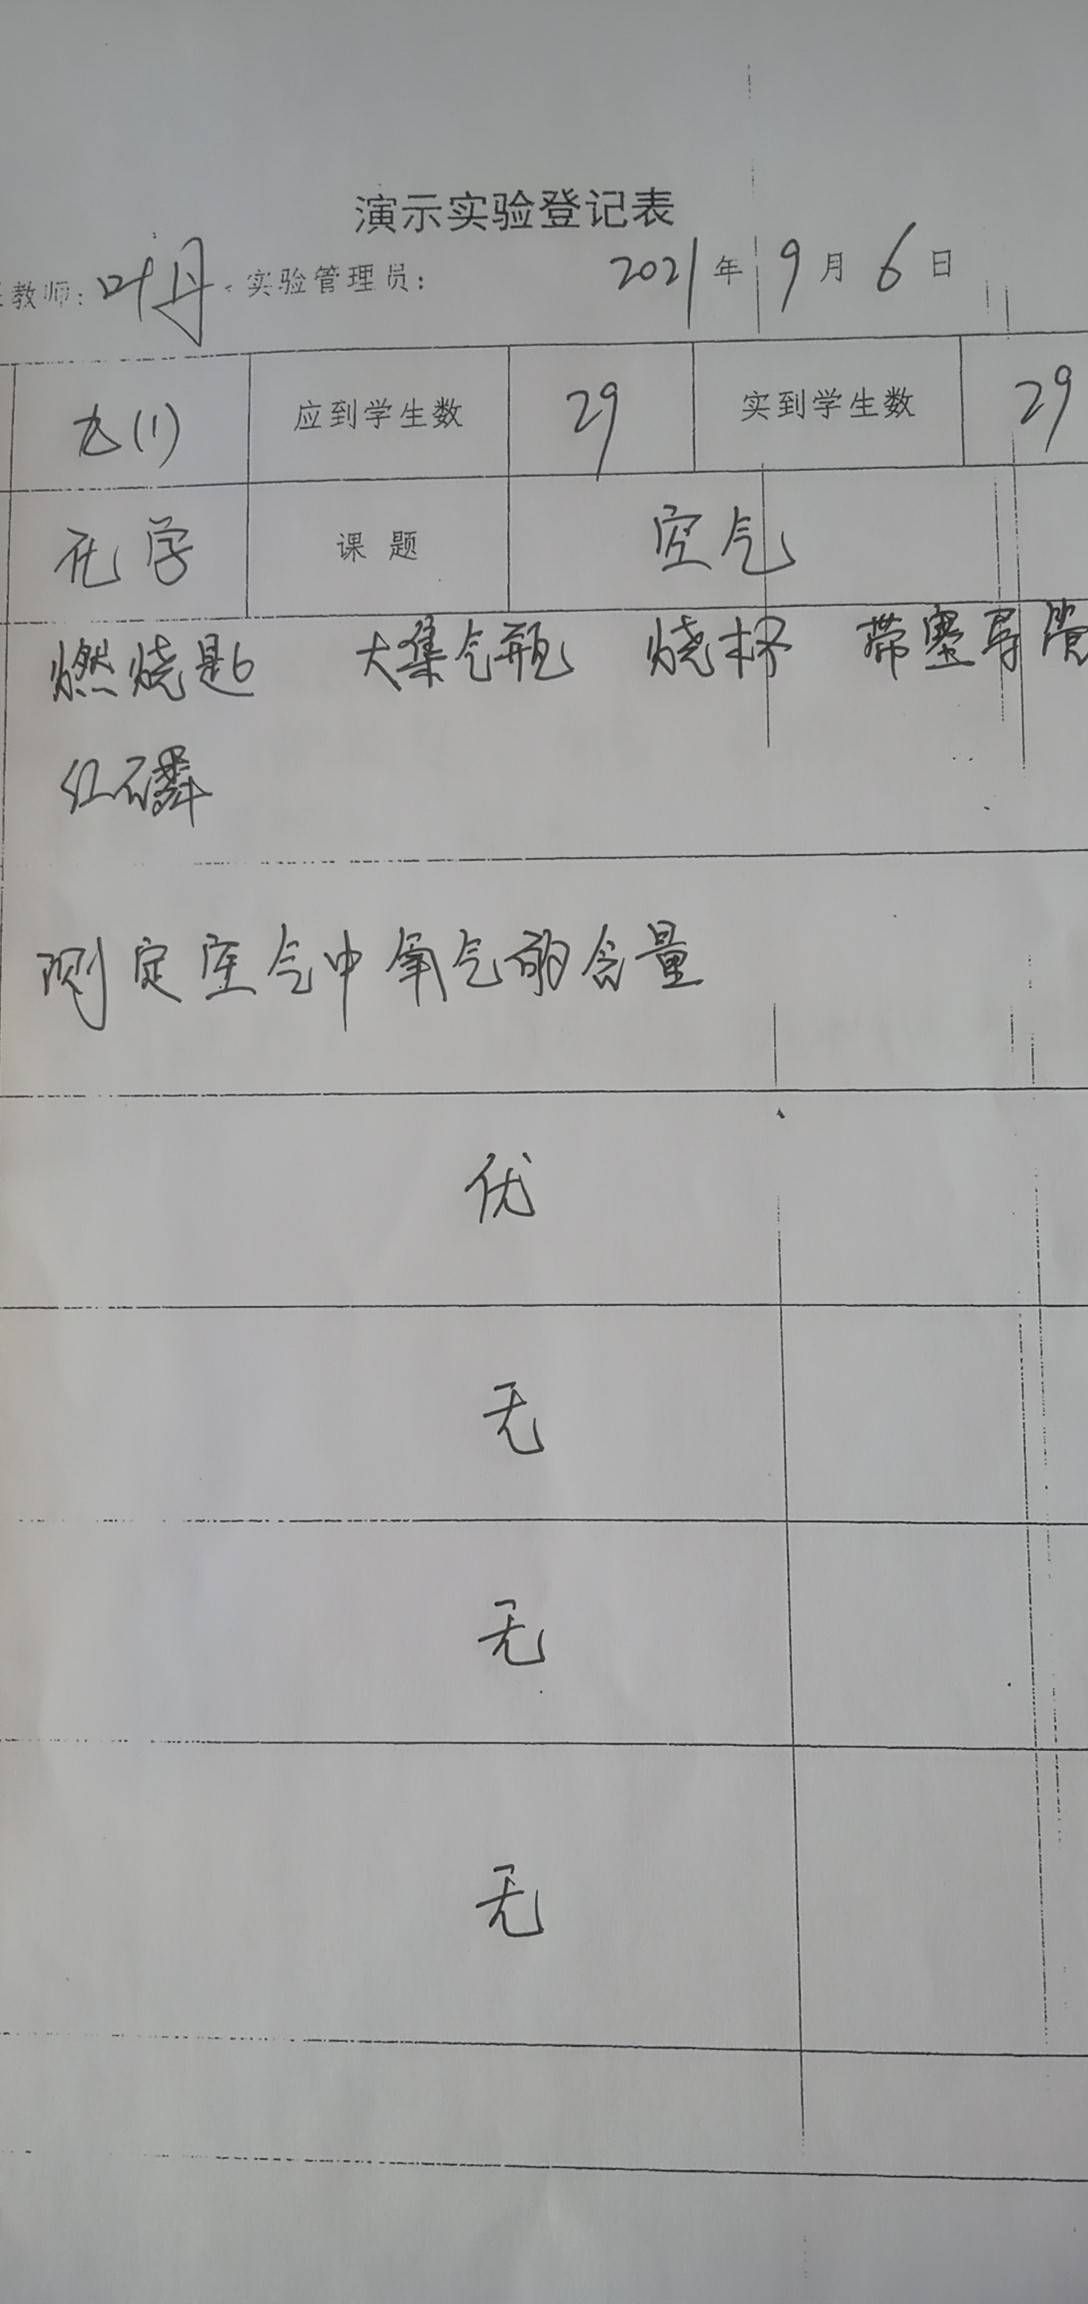 演示实验登记表
教师：叶丹 实验管理员： 2021年9月6日
九(1) 应到学生数 29 实到学生数 29
化学 课题 空气
燃烧匙 大集气瓶 烧杯 带塞导管
红磷
测定空气中氧气的含量
优
无
无
无